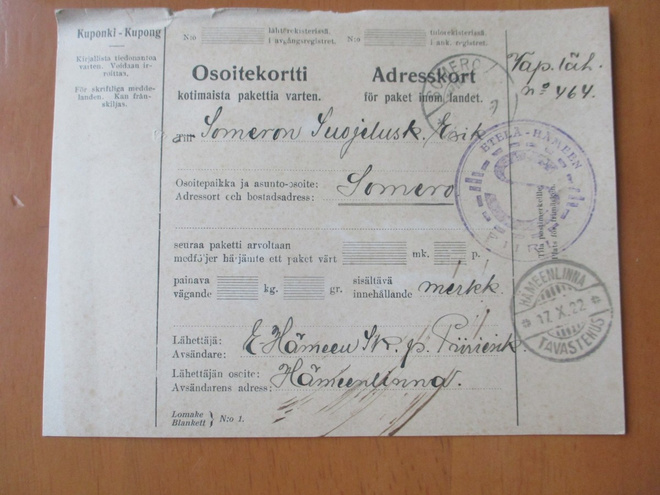 Kuponki - Kupong
Kirjallista tiedonantoa
varten. Voidaan ir-
roittaa.
För skriftliga medde-
landen. Kan från-
skiljas.
N:o lähtörekisterissä
i avgångsregistret.
N:o tulorekisterissä
i ank. registret.
Osoitekortti
kotimaista pakettia varten.
Adresskort
för paket inom landet.
Vap. läh.
no 464.
SOMERO
Someron Suojelusk. Esik
Osoitepaikka ja asunto-osoite:
Adressort och bostadsadress:
Somero
ETELÄ-HÄMEEN
seuraa paketti arvoltaan
medföljer härjämte ett paket värt
mk. p.
painava
vägande
kg. gr.
sisältävä
innehållande
HÄMEENLINNA
17.X.22
TAVASTEHUS
Lähettäjä:
Avsändare:
E-Hämeen Sk. p. Piiriesik.
Lähettäjän osoite:
Avsändarens adress:
Hämeenlinna.
Lomake
Blankett
N:o 1.